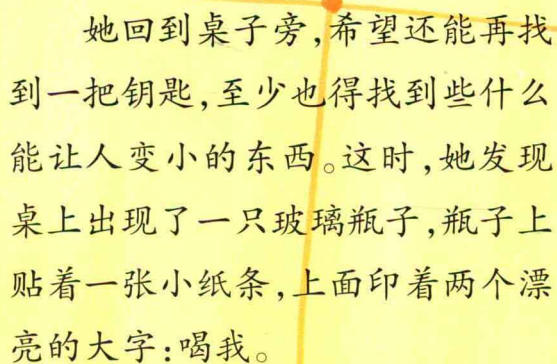 她回到桌子旁,希望还能再找
到一把钥匙,至少也得找到些什么
能让人变小的东西。这时,她发现
桌上出现了一只玻璃瓶子,瓶子上
贴着一张小纸条,上面印着两个漂
亮的大字:喝我。